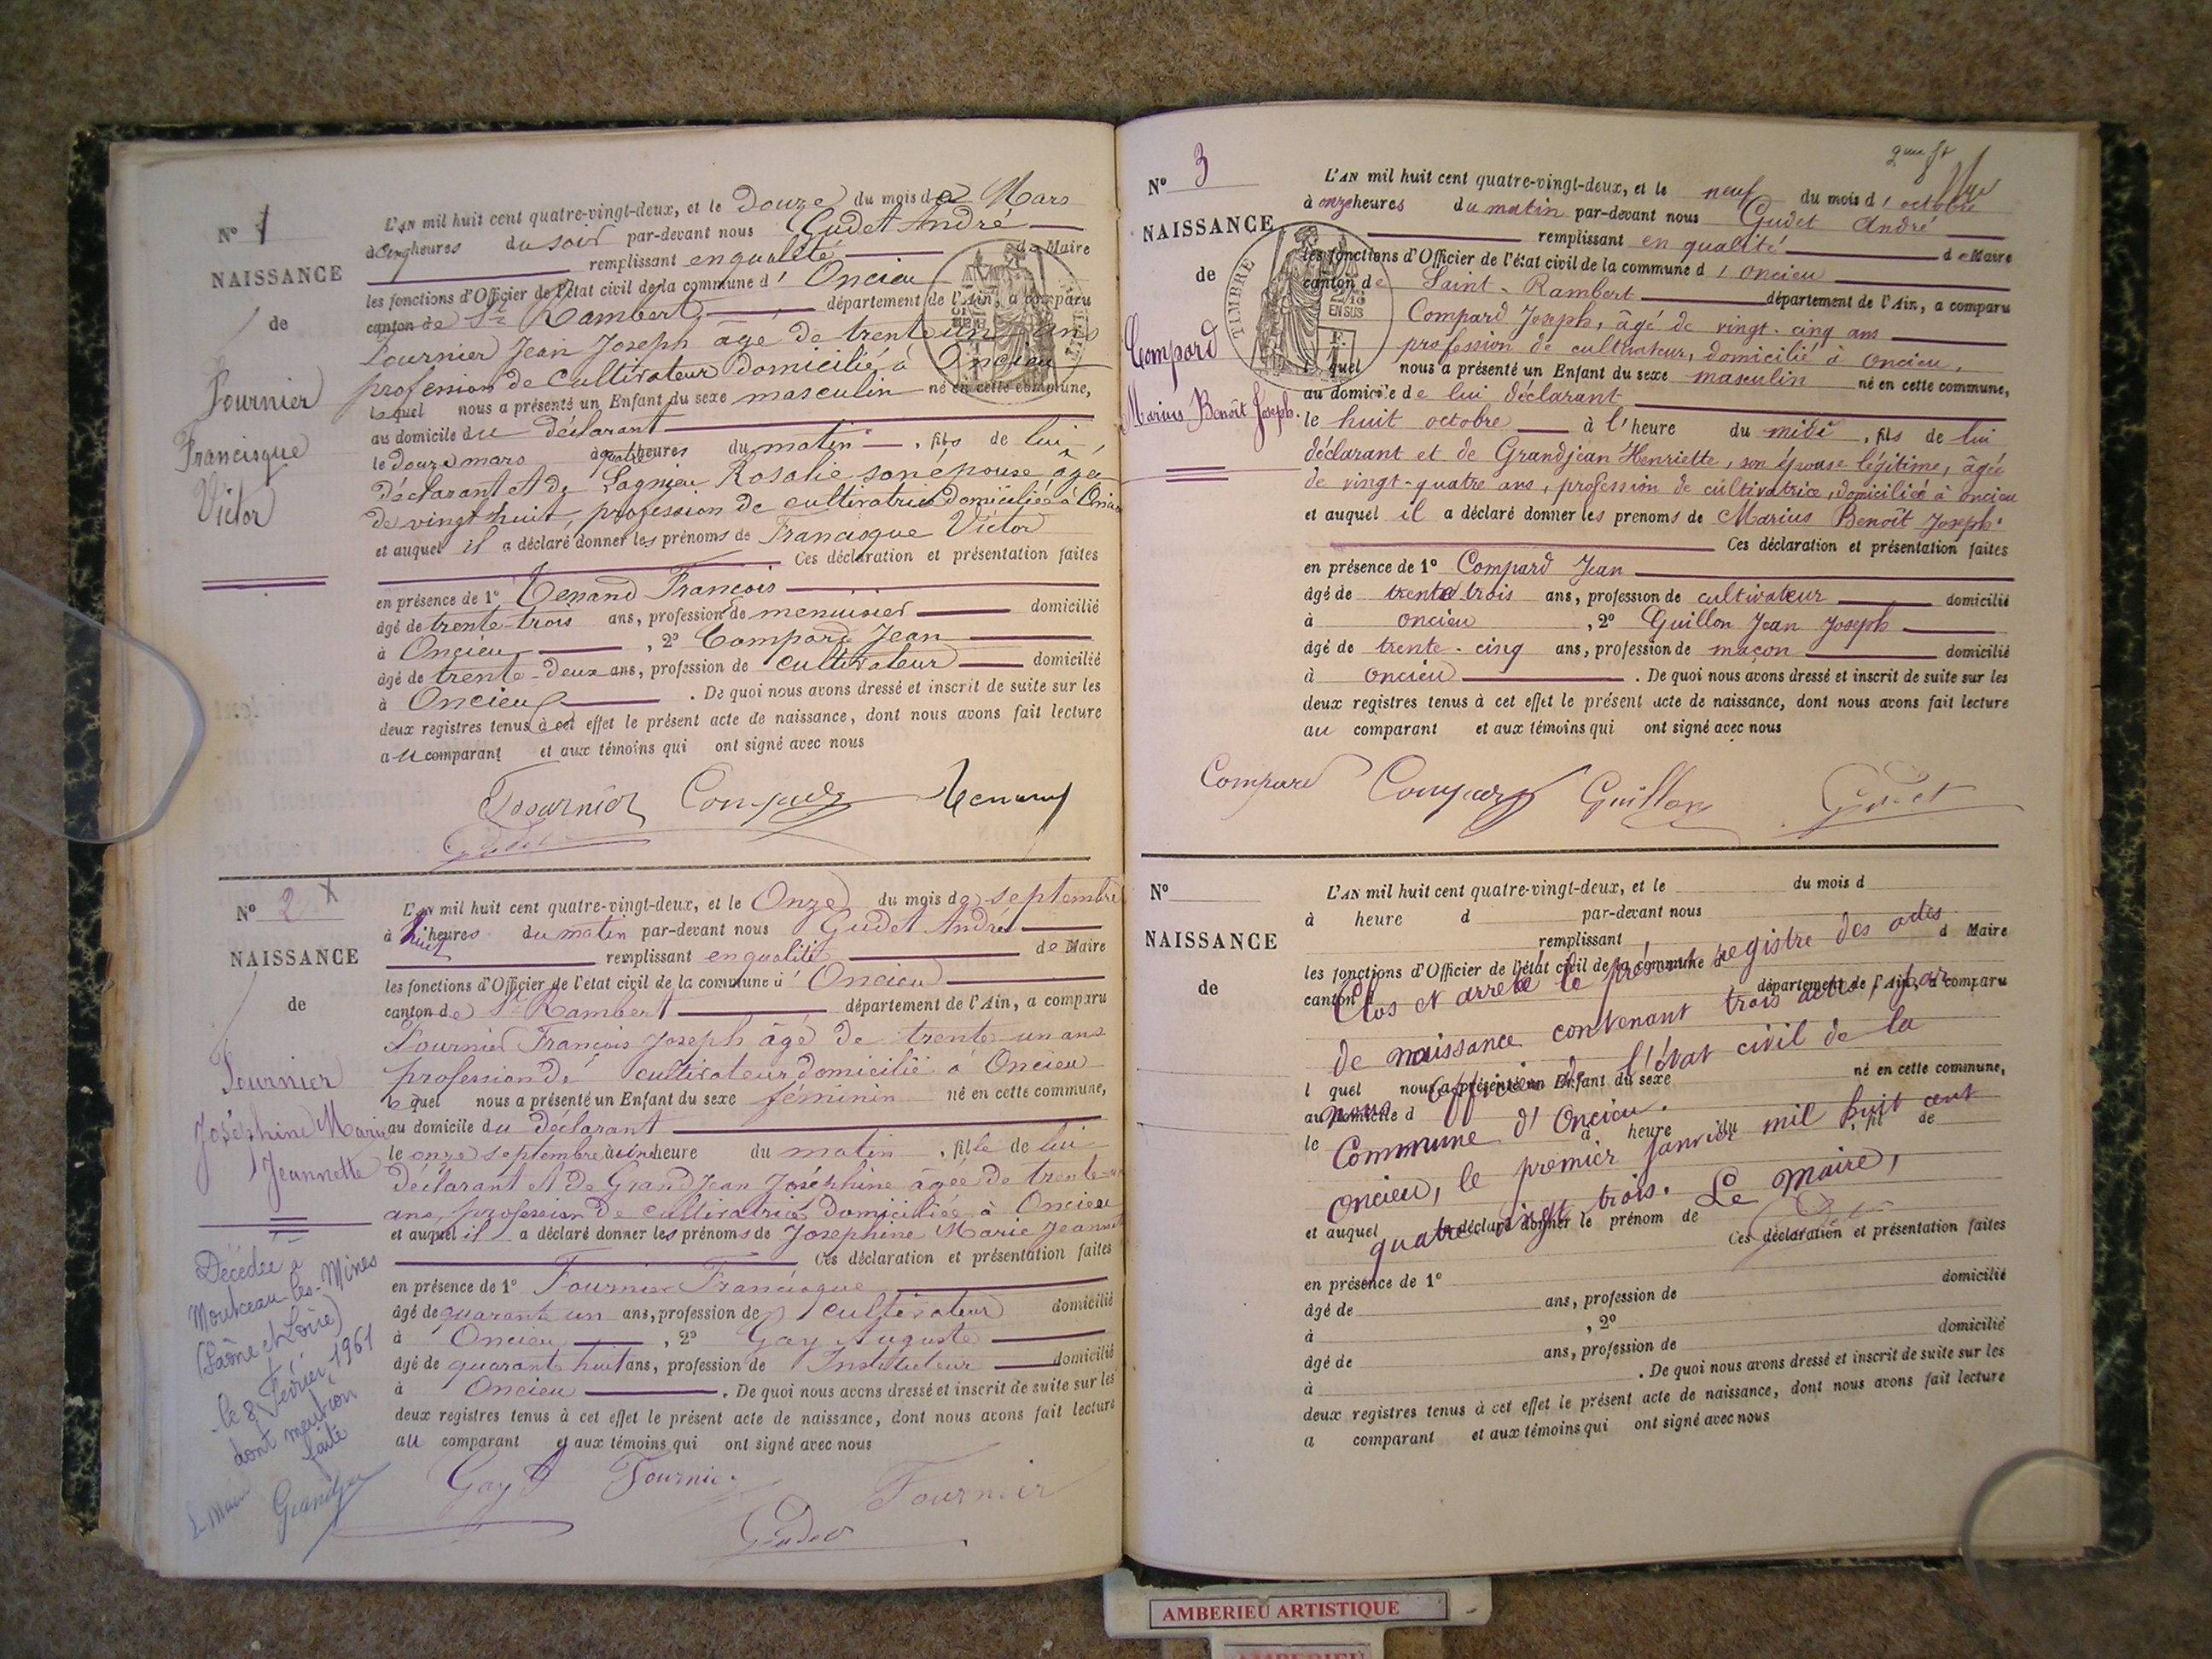 N° 1
NAISSANCE
de
Fournier
Francisque
Victor
L'AN mil huit cent quatre-vingt-deux, et le Douze du mois de Mars
à cinq heures du soir par-devant nous Gudet André
remplissant en qualité de Maire
les fonctions d'Officier de l'état civil de la commune d' Oncieu
canton de St Rambert département de l'Ain, a comparu
Fournier Jean Joseph âgé de trente un ans
profession de Cultivateur domicilié à Oncieu
lequel nous a présenté un Enfant du sexe masculin né en cette commune,
au domicile du déclarant
le douze mars à quatre heures du matin, fils de lui
déclarant et de Lagnieu Rosalie son épouse âgée
de vingt huit, profession de cultivatrice domiciliée à Oncieu
et auquel il a déclaré donner les prénoms de Francisque Victor
Ces déclaration et présentation faites
en présence de 1° Tenand François
âgé de trente-trois ans, profession de menuisier domicilié
à Oncieu, 2° Compard Jean
âgé de trente-deux ans, profession de cultivateur domicilié
à Oncieu. De quoi nous avons dressé et inscrit de suite sur les
deux registres tenus à cet effet le présent acte de naissance, dont nous avons fait lecture
au comparant et aux témoins qui ont signé avec nous
Fournier Compard Tenand
Gudet
N° 2 X
NAISSANCE
de
Fournier
Joséphine Marie
Jeannette
Décédée à
Montceau-les-Mines
(Saône et Loire)
le 8 Février 1961
dont mention
faite
Le Maire
Grandjean
L'AN mil huit cent quatre-vingt-deux, et le Onze du mois de septembre
à huit heures du matin par-devant nous Gudet André
remplissant en qualité de Maire
les fonctions d'Officier de l'état civil de la commune d' Oncieu
canton de St Rambert département de l'Ain, a comparu
Fournier François Joseph âgé de trente un ans
profession de cultivateur domicilié à Oncieu
lequel nous a présenté un Enfant du sexe féminin né en cette commune,
au domicile du déclarant
le onze septembre à une heure du matin, fille de lui
déclarant et de Grandjean Joséphine âgée de trente-un
ans, profession de cultivatrice domiciliée à Oncieu
et auquel il a déclaré donner les prénoms de Joséphine Marie Jeannette
Ces déclaration et présentation faites
en présence de 1° Fournier Francisque
âgé de quarante un ans, profession de cultivateur domicilié
à Oncieu, 2° Gay Auguste
âgé de quarante huit ans, profession de Instituteur domicilié
à Oncieu. De quoi nous avons dressé et inscrit de suite sur les
deux registres tenus à cet effet le présent acte de naissance, dont nous avons fait lecture
au comparant et aux témoins qui ont signé avec nous
Gay Fournier Fournier
Gudet
N° 3
NAISSANCE
de
Compard
Marius Benoît Joseph.
TIMBRE
EN SUS
L'AN mil huit cent quatre-vingt-deux, et le neuf du mois d'octobre
à onze heures du matin par-devant nous Gudet André
remplissant en qualité de Maire
les fonctions d'Officier de l'état civil de la commune d'Oncieu
canton de Saint-Rambert département de l'Ain, a comparu
Compard Joseph, âgé de vingt-cinq ans
profession de cultivateur, domicilié à oncieu,
lequel nous a présenté un Enfant du sexe masculin né en cette commune,
au domicile de lui déclarant
le huit octobre à l'heure du midi, fils de lui
déclarant et de Grandjean Henriette, son épouse légitime, âgée
de vingt-quatre ans, profession de cultivatrice, domiciliée à oncieu
et auquel il a déclaré donner les prenoms de Marius Benoît Joseph.
Ces déclaration et présentation faites
en présence de 1° Compard Jean
âgé de trente trois ans, profession de cultivateur domicilié
à oncieu, 2° Guillon Jean Joseph
âgé de trente-cinq ans, profession de maçon domicilié
à oncieu. De quoi nous avons dressé et inscrit de suite sur les
deux registres tenus à cet effet le présent acte de naissance, dont nous avons fait lecture
au comparant et aux témoins qui ont signé avec nous
Compard Compard Guillon Gudet
N°
NAISSANCE
de
L'AN mil huit cent quatre-vingt-deux, et le du mois d
à heure d par-devant nous
remplissant d Maire
les fonctions d'Officier de l'état civil de la commune d
canton d département de l'Ain, a comparu
l quel nous a présenté un Enfant du sexe né en cette commune,
au domicile d
le à heure du, fil de
et auquel a déclaré donner le prénom de
Ces déclaration et présentation faites
en présence de 1° domicilié
âgé de ans, profession de
à , 2° domicilié
âgé de ans, profession de
à . De quoi nous avons dressé et inscrit de suite sur les
deux registres tenus à cet effet le présent acte de naissance, dont nous avons fait lecture
a comparant et aux témoins qui ont signé avec nous
Clos et arrêté le présent registre des actes
de naissance contenant trois actes, par
nous officier de l'état civil de la
Commune d'Oncieu.
Oncieu, le premier janvier mil huit cent
quatre vingt trois. Le Maire,
Gudet
AMBERIEU ARTISTIQUE
AMBERIEU